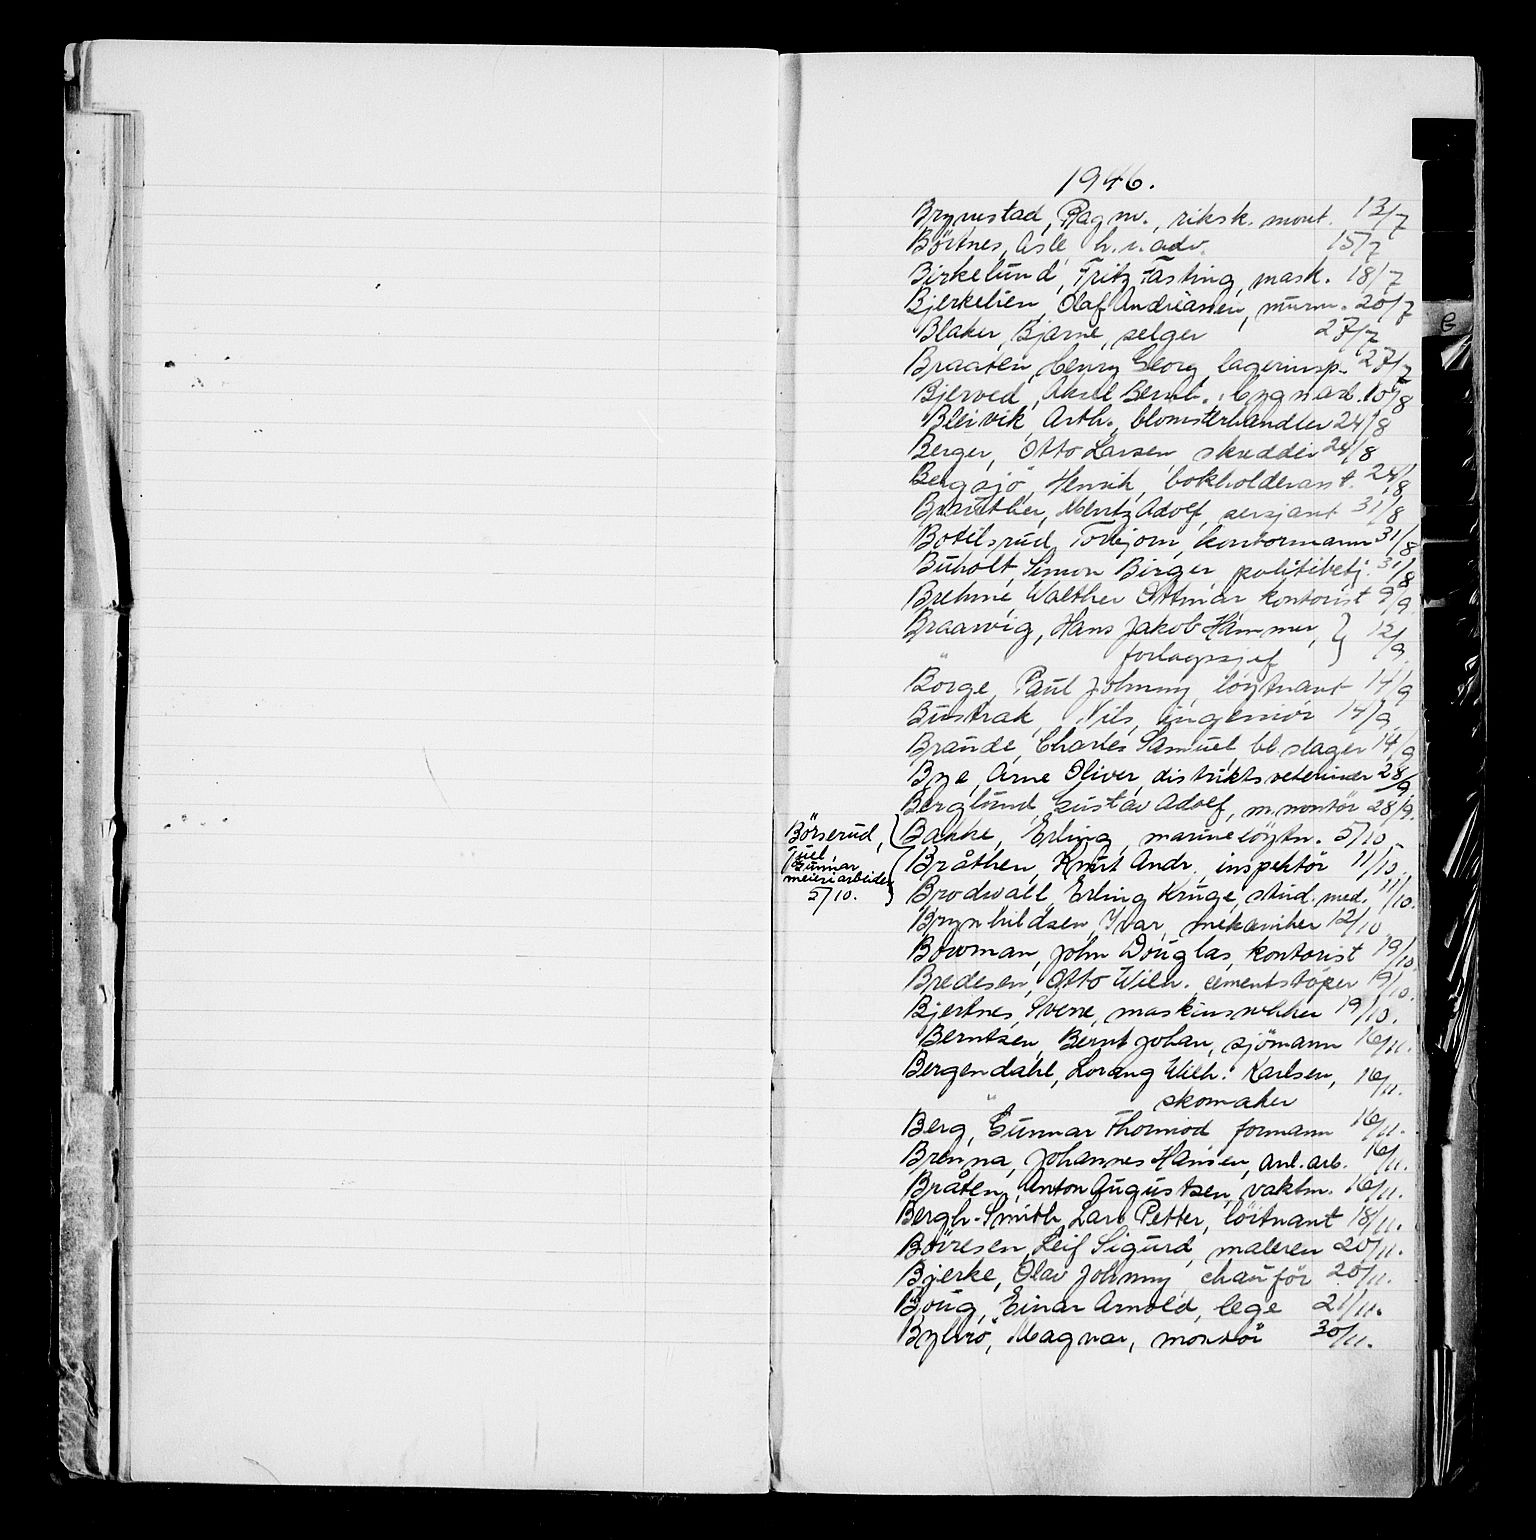 1946.
Brynestad, Ragnv., riksk. mont. 13/7
Börtnes, Asle h.r.adv. 15/7
Birkelund, Fritz Fasting, mask. 18/7
Bjerkelien, Olaf Andreassen, murm. 20/7
Blaker, Bjarne, selger 27/7
Braaten, Henry Georg lagerinsp. 27/7
Bjerved, Aksel Bernh., bygn.arb. 10/8
Bleivik, Arth., blomsterhandler 24/8
Berger, Otto Larsen skredder 24/8
Bergsjö, Henrik, bokholderass t. 24/8
Mentz Adolf, sersjant 31/8
Botilsrud, Torbjorn, kontormann 31/8
Buholt, Simon Birger, politibetj. 31/8
Brehme, Walther Ottmar kontorist 9/9
Braarvig, Hans Jakob Hammer, } 12/9.
" forlagssjef
Borge, Paul Johnny, löytnant 14/9
Bustrak, Nils, ingeniör 14/9.
Brande, Charles Samuel, bl.slager 14/9
Bye, Arne Oliver, distriktsveterinær 28/9.
Berglund, Gustav Adolf, m.montör 28/9.
Börserud, Juel Gunnar meieriarbeider 5/10.
Bakke, Erling, marinelöytn. 5/10
Bråthen, Knut Andr., inspektör 11/10.
Brodwall, Erling Kruge, stud. med. 11/10.
Brynhildsen, Ivar, mekaniker 12/10
Bowman, John Douglas, kontorist 19/10.
Bredesen, Otto Wilh. cementstöper 19/10.
Bjertnes, Svene, maskinsnekker 19/10.
Berntsen, Bernt Johan, sjömann 16/11.
Bergendahl, Lorang Wilh. Karlsen, 16/11.
" skomaker
Berg, Gunnar Thormod formann 16/11.
Brenna, Johannes Hansen, anl.arb. 16/11.
Bråten, Anton Augustsen, vaktm. 16/11.
Bergh-Smith, Lars Petter, löitnant 18/11.
Böiresen, Leif Sigurd, maleren 20/11.
Bjerke, Olav Johnny, chauför 20/11.
Boug, Einar Arnold, lege 21/11.
Magnar, montör 30/11.